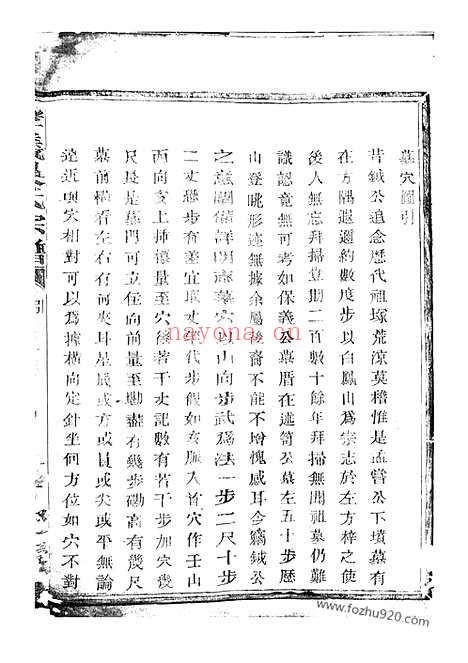 墓穴圖引
昔鉞公追念歷代祖塚荒涼莫稽惟是孟嘗公下墳墓有
在方隅遐邇約數度步以白鳳山為崇志於左方梓之使
後人無忘拜掃豈期二百數十餘年拜掃無聞祖墓仍難
識認竟無可考如保義公墓厝在述筍公墓左五十步歷
山登眺形迹無據余屬後裔不能不增愧感耳今竊鉞公
之意圖備詳明壽墓穴以山向步武為法一步二尺十步
二丈恐步有差宜取丈尺代步假如亥脈入首穴作壬山
丙向支上揷標量至穴後若干丈記數有若干步加穴後
尺尺是墓門可立在向前量至磡盡有幾步磡高有幾尺
墓前橫看左右有何夾耳星辰或方或員或尖或平無論
遠近與穴相對可以為據橫向定針坐何方位如穴不對
宗譜
引
nayona.cn
www.fozhu920.com